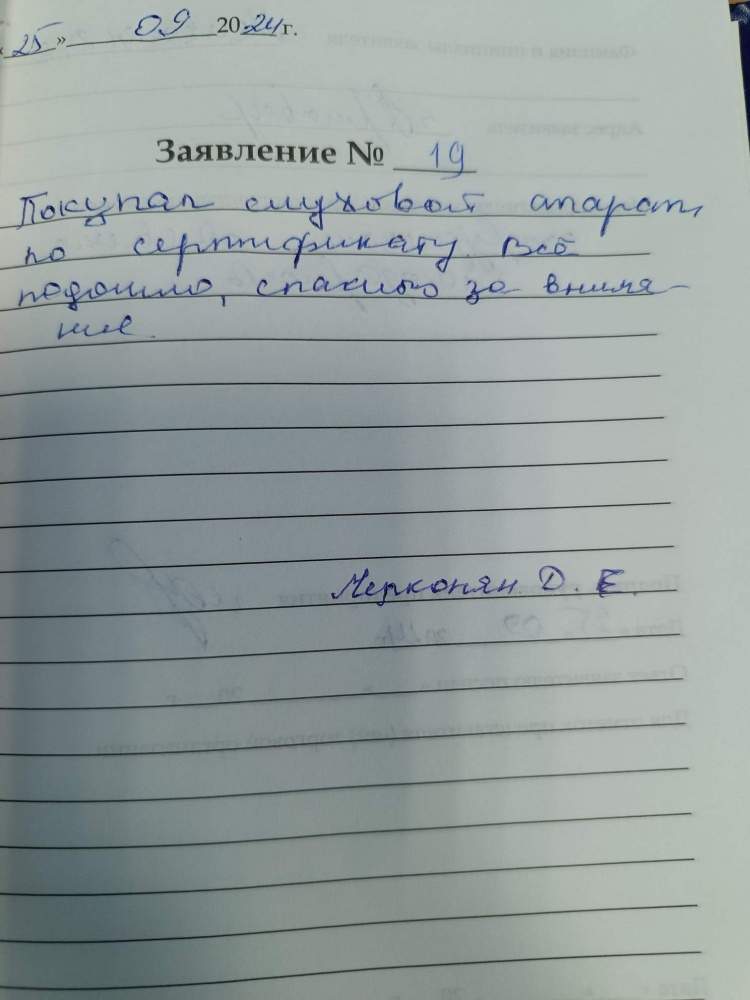 «25» 09 2024г.
Заявление № 19
Покупал слуховой апарат,
по сертификату. Всё
подошло, спасибо за внима-
ние.
Мерконян Д. Е.